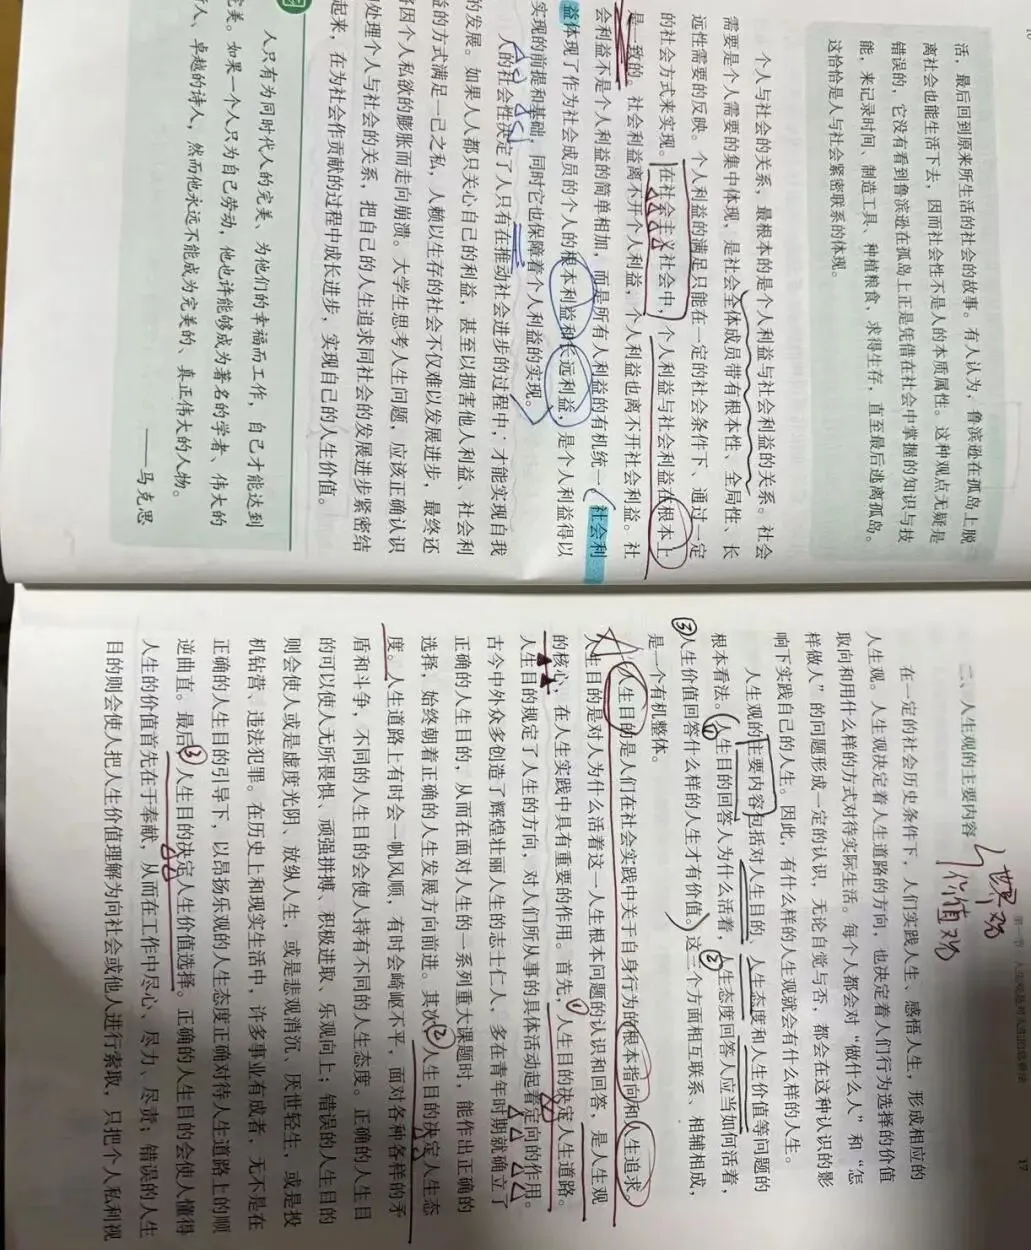 活，最后回到原来所生活的社会的故事。有人认为，鲁滨逊在孤岛上脱
离社会也能生活下去，因而社会性不是人的本质属性。这种观点无疑是
错误的，它没有看到鲁滨逊在孤岛上正是凭借在社会中掌握的知识与技
能，来记录时间、制造工具、种植粮食，求得生存，直至最后逃离孤岛。
这恰恰是人与社会紧密联系的体现。
个人与社会的关系，最根本的是个人利益与社会利益的关系。社会
需要是个人需要的集中体现，是社会全体成员带有根本性、全局性、长
远性需要的反映。个人利益的满足只能在一定的社会条件下、通过一定
的社会方式来实现。在社会主义社会中，个人利益与社会利益在根本上
是一致的。社会利益离不开个人利益，个人利益也离不开社会利益。社
会利益不是个人利益的简单相加，而是所有人利益的有机统一。社会利
益体现了作为社会成员的个人的根本利益和长远利益，是个人利益得以
实现的前提和基础，同时它也保障着个人利益的实现。
人的社会性决定了人只有在推动社会进步的过程中，才能实现自我
的发展。如果人人都只关心自己的利益，甚至以损害他人利益、社会利
益的方式满足一己之私，人赖以生存的社会不仅难以发展进步，最终还
因个人私欲的膨胀而走向崩溃。大学生思考人生问题，应该正确认识
处理个人与社会的关系，把自己的人生追求同社会的发展进步紧密结
起来，在为社会作贡献的过程中成长进步，实现自己的人生价值。
人只有为同时代人的完美、为他们的幸福而工作，自己才能达到
完美。如果一个人只为自己劳动，他也许能够成为著名的学者、伟大的
人、卓越的诗人，然而他永远不能成为完美的、真正伟大的人物。
——马克思
17
二、人生观的主要内容
世界观
价值观
在一定的社会历史条件下，人们实践人生、感悟人生，形成相应的
人生观。人生观决定着人生道路的方向，也决定着人们行为选择的价值
取向和用什么样的方式对待实际生活。每个人都会对“做什么人”和“怎
样做人”的问题形成一定的认识，无论自觉与否，都会在这种认识的影
响下实践自己的人生。因此，有什么样的人生观就会有什么样的人生。
人生观的主要内容包括对人生目的、人生态度和人生价值等问题的
根本看法。①人生目的回答人为什么活着，②人生态度回答人应当如何活着，
③人生价值回答什么样的人生才有价值。这三个方面相互联系、相辅相成，
是一个有机整体。
人生目的是人们在社会实践中关于自身行为的根本指向和人生追求。
人生目的是对人为什么活着这一人生根本问题的认识和回答，是人生观
的核心，在人生实践中具有重要的作用。首先，①人生目的决定人生道路。
人生目的规定了人生的方向，对人们所从事的具体活动起着定向的作用。
古今中外众多创造了辉煌壮丽人生的志士仁人，多在青年时期就确立了
正确的人生目的，从而在面对人生的一系列重大课题时，能作出正确的
选择，始终朝着正确的人生发展方向前进。其次②人生目的决定人生态
度。人生道路上有时会一帆风顺，有时会崎岖不平，面对各种各样的矛
盾和斗争，不同的人生目的会使人持有不同的人生态度。正确的人生目
的可以使人无所畏惧、顽强拼搏、积极进取、乐观向上；错误的人生目的
则会使人或是虚度光阴、放纵人生，或是悲观消沉、厌世轻生，或是投
机钻营、违法犯罪。在历史上和现实生活中，许多事业有成者，无不是在
正确的人生目的引导下，以昂扬乐观的人生态度正确对待人生道路上的顺
逆曲直。最后③人生目的决定人生价值选择。正确的人生目的会使人懂得
人生的价值首先在于奉献，从而在工作中尽心、尽力、尽责；错误的人生
目的则会使人把人生价值理解为向社会或他人进行索取，只把个人私利视